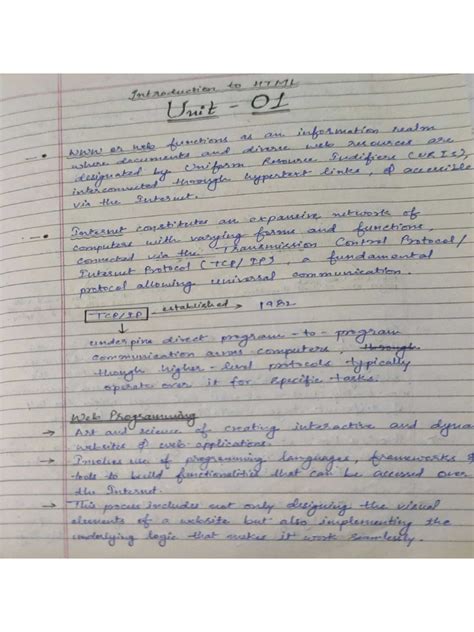 Introduction to HTML
Unit - 01
WWW or web functions as an information realm
where documents and diverse web resources are
designated by Uniform Resource Indifiers (URIs),
interconnected through hypertext links, & accessible
via the Internet.
Internet constitutes an expansive network of
computers with varying forms and functions,
connected via the Transmission Control Protocol/
Internet Protocol (TCP/IP), a fundamental
protocol allowing universal communication.
TCP/IP established → 1982
underpins direct program - to - program
communication across computers, through
though higher-level protocols typically
operate over it for specific tasks.
Web Programming
→ Art and science of creating interactive and dyna
websites & web applications.
→ Involves use of programming languages, frameworks &
tools to build functionalities that can be accessed over
the Internet.
→ This process includes not only designing the visual
elements of a website but also implementing the
underlying logic that makes it work seamlessly.